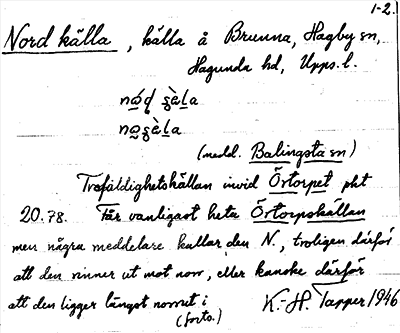 1-2.
Nordkälla, källa å Brunna, Hagby sn,
Hagunda hd, Upps. l.
(medd. Balingsta sn)
Trefaldighetskällan invid Örtorpet pkt
20.78. Får vanligast heta Örtorpskällan
men några meddelare kallar den N., troligen därför
att den rinner ut mot norr, eller kanske därför
att den ligger längst norrut i
(forts.)
K.-H. Tapper 1946